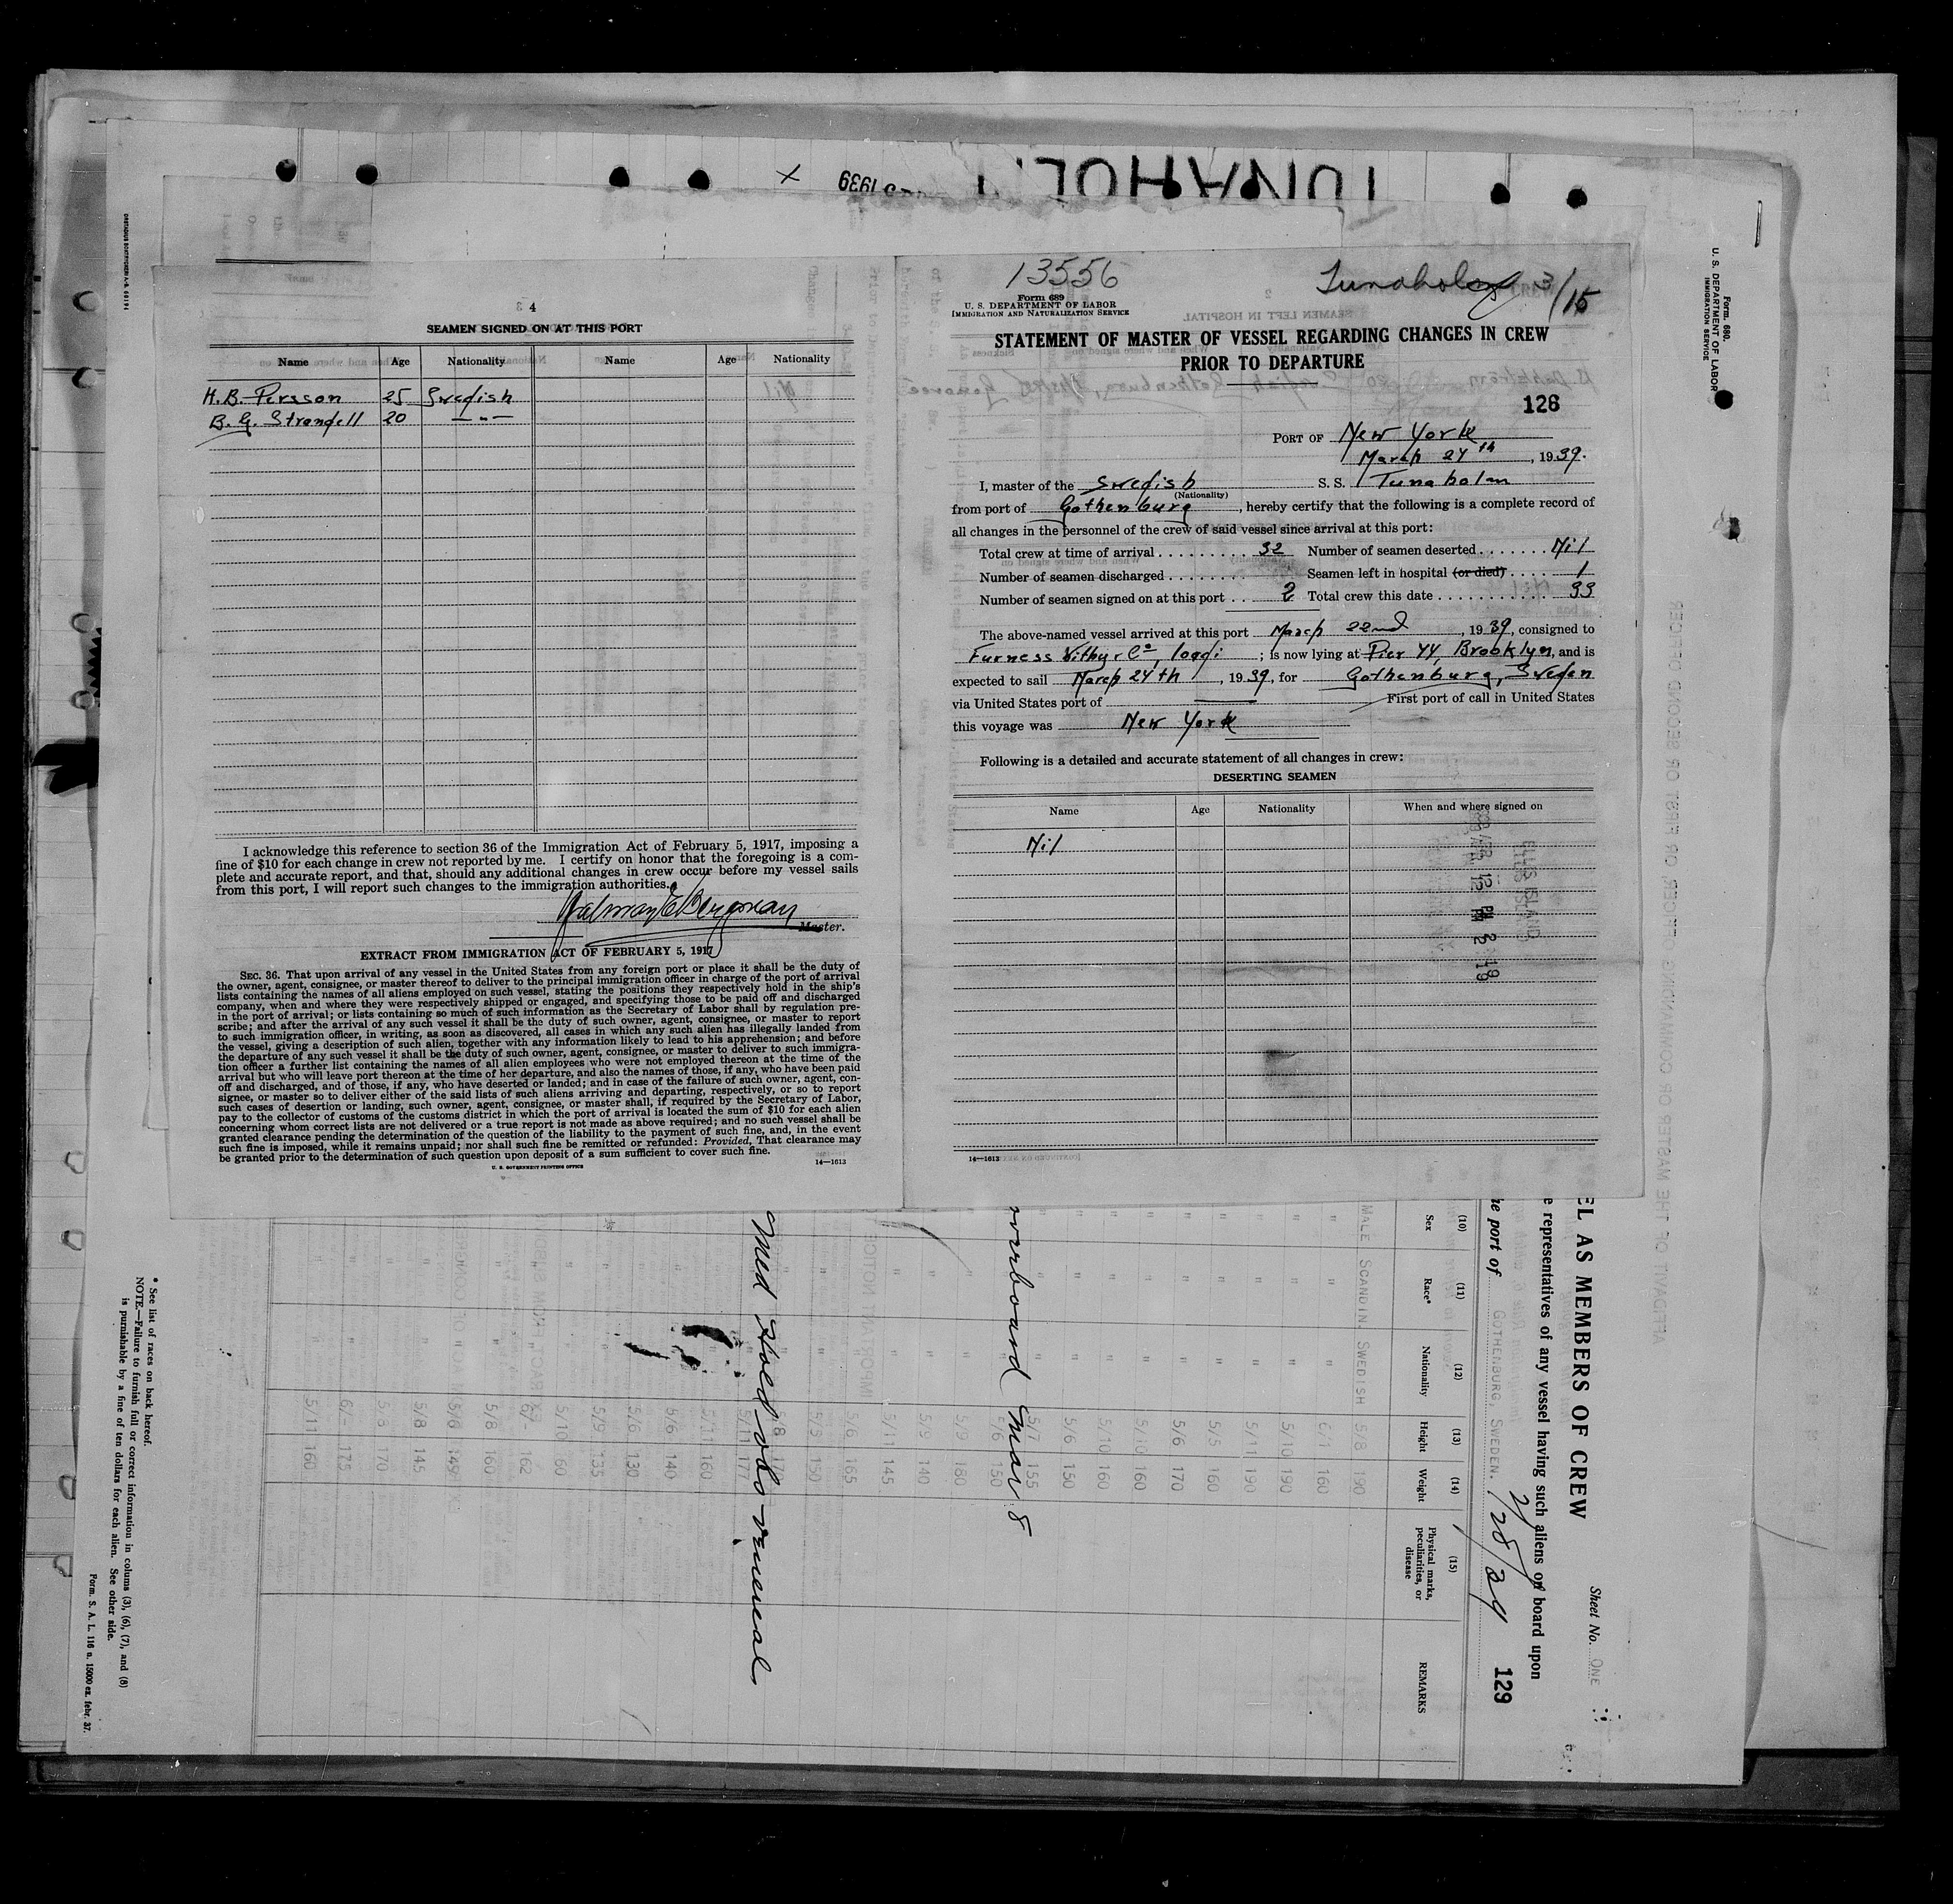 4
SEAMEN SIGNED ON AT THIS PORT
Name Age Nationality Name Age Nationality
H. B. Persson 25 Swedish
B. G. Strandell 20 — " —
I acknowledge this reference to section 36 of the Immigration Act of February 5, 1917, imposing a
fine of $10 for each change in crew not reported by me. I certify on honor that the foregoing is a com-
plete and accurate report, and that, should any additional changes in crew occur before my vessel sails
from this port, I will report such changes to the immigration authorities.
Bergman
Master.
EXTRACT FROM IMMIGRATION ACT OF FEBRUARY 5, 1917
SEC. 36. That upon arrival of any vessel in the United States from any foreign port or place it shall be the duty of
the owner, agent, consignee, or master thereof to deliver to the principal immigration officer in charge of the port of arrival
lists containing the names of all aliens employed on such vessel, stating the positions they respectively hold in the ship's
company, when and where they were respectively shipped or engaged, and specifying those to be paid off and discharged
in the port of arrival; or lists containing so much of such information as the Secretary of Labor shall by regulation pre-
scribe; and after the arrival of any such vessel it shall be the duty of such owner, agent, consignee, or master to report
to such immigration officer, in writing, as soon as discovered, all cases in which any such alien has illegally landed from
the vessel, giving a description of such alien, together with any information likely to lead to his apprehension; and before
the departure of any such vessel it shall be the duty of such owner, agent, consignee, or master to deliver to such immigra-
tion officer a further list containing the names of all alien employees who were not employed thereon at the time of the
arrival but who will leave port thereon at the time of her departure, and also the names of those, if any, who have been paid
off and discharged, and of those, if any, who have deserted or landed; and in case of the failure of such owner, agent, con-
signee, or master so to deliver either of the said lists of such aliens arriving and departing, respectively, or so to report
such cases of desertion or landing, such owner, agent, consignee, or master shall, if required by the Secretary of Labor,
pay to the collector of customs of the customs district in which the port of arrival is located the sum of $10 for each alien
concerning whom correct lists are not delivered or a true report is not made as above required; and no such vessel shall be
granted clearance pending the determination of the question of the liability to the payment of such fine, and, in the event
such fine is imposed, while it remains unpaid; nor shall such fine be remitted or refunded: Provided, That clearance may
be granted prior to the determination of such question upon deposit of a sum sufficient to cover such fine.
U. S. GOVERNMENT PRINTING OFFICE 14—1613
13556
Tunaholm 3/15
Form 689
U. S. DEPARTMENT OF LABOR
IMMIGRATION AND NATURALIZATION SERVICE
STATEMENT OF MASTER OF VESSEL REGARDING CHANGES IN CREW
PRIOR TO DEPARTURE
128
PORT OF New York
March 24th, 1939.
I, master of the Swedish S. S. Tunaholm
(Nationality)
from port of Gothenburg, hereby certify that the following is a complete record of
all changes in the personnel of the crew of said vessel since arrival at this port:
Total crew at time of arrival 32 Number of seamen deserted Nil
Number of seamen discharged Seamen left in hospital (or died) 1
Number of seamen signed on at this port 2 Total crew this date 33
The above-named vessel arrived at this port March 22nd, 1939, consigned to
Furness Withy & Co; is now lying at Pier 44, Brooklyn, and is
expected to sail March 24th, 1939, for Gothenburg, Sweden
via United States port of First port of call in United States
this voyage was New York
Following is a detailed and accurate statement of all changes in crew:
DESERTING SEAMEN
Name Age Nationality When and where signed on
Nil
14—1613
TUNAHOL
1939
Form 680.
U. S. DEPARTMENT OF LABOR
IMMIGRATION SERVICE
EL AS MEMBERS OF CREW
Sheet No. ONE
e representatives of any vessel having such aliens on board upon
he port of GOTHENBURG, SWEDEN.
129
(10) (11) (12) (13) (14) (15)
Sex Race* Nationality Height Weight Physical marks, peculiarities, or disease REMARKS
MALE SCANDIN. SWEDISH 5/8 190
6/1 160
5/10 190
5/11 190
5/5 160
5/6 170
5/10 160
5/10 160
5/6 150
5/7 155
overboard Mar 8
5/6 150
5/9 180
5/9 140
5/11 145
5/6 165
5/9 150
5/11 177
Med Hold
5/11 160
5/6 140
5/6 130
5/9 135
5/10 160
6/- 162
5/8 160
5/6 149
5/8 145
5/8 170
6/- 175
5/11 160
* See list of races on back hereof.
NOTE.—Failure to furnish full or correct information in colums (3), (6), (7), and (8)
is punishable by a fine of ten dollars for each alien. See other side.
Form. S. A. L. 116 n. 15000 ex. febr. 37.